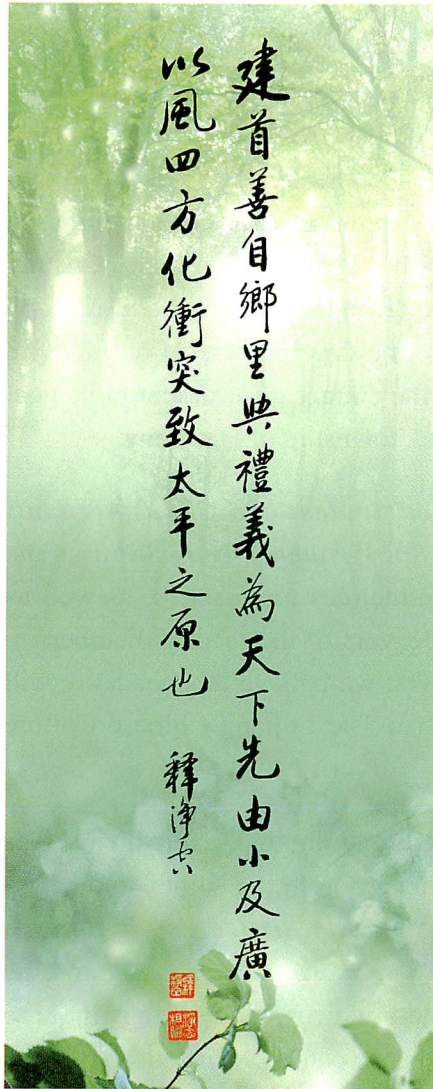 建首善自鄉里興禮義為天下先由小及廣
以風四方化衝突致太平之原也 釋淨空